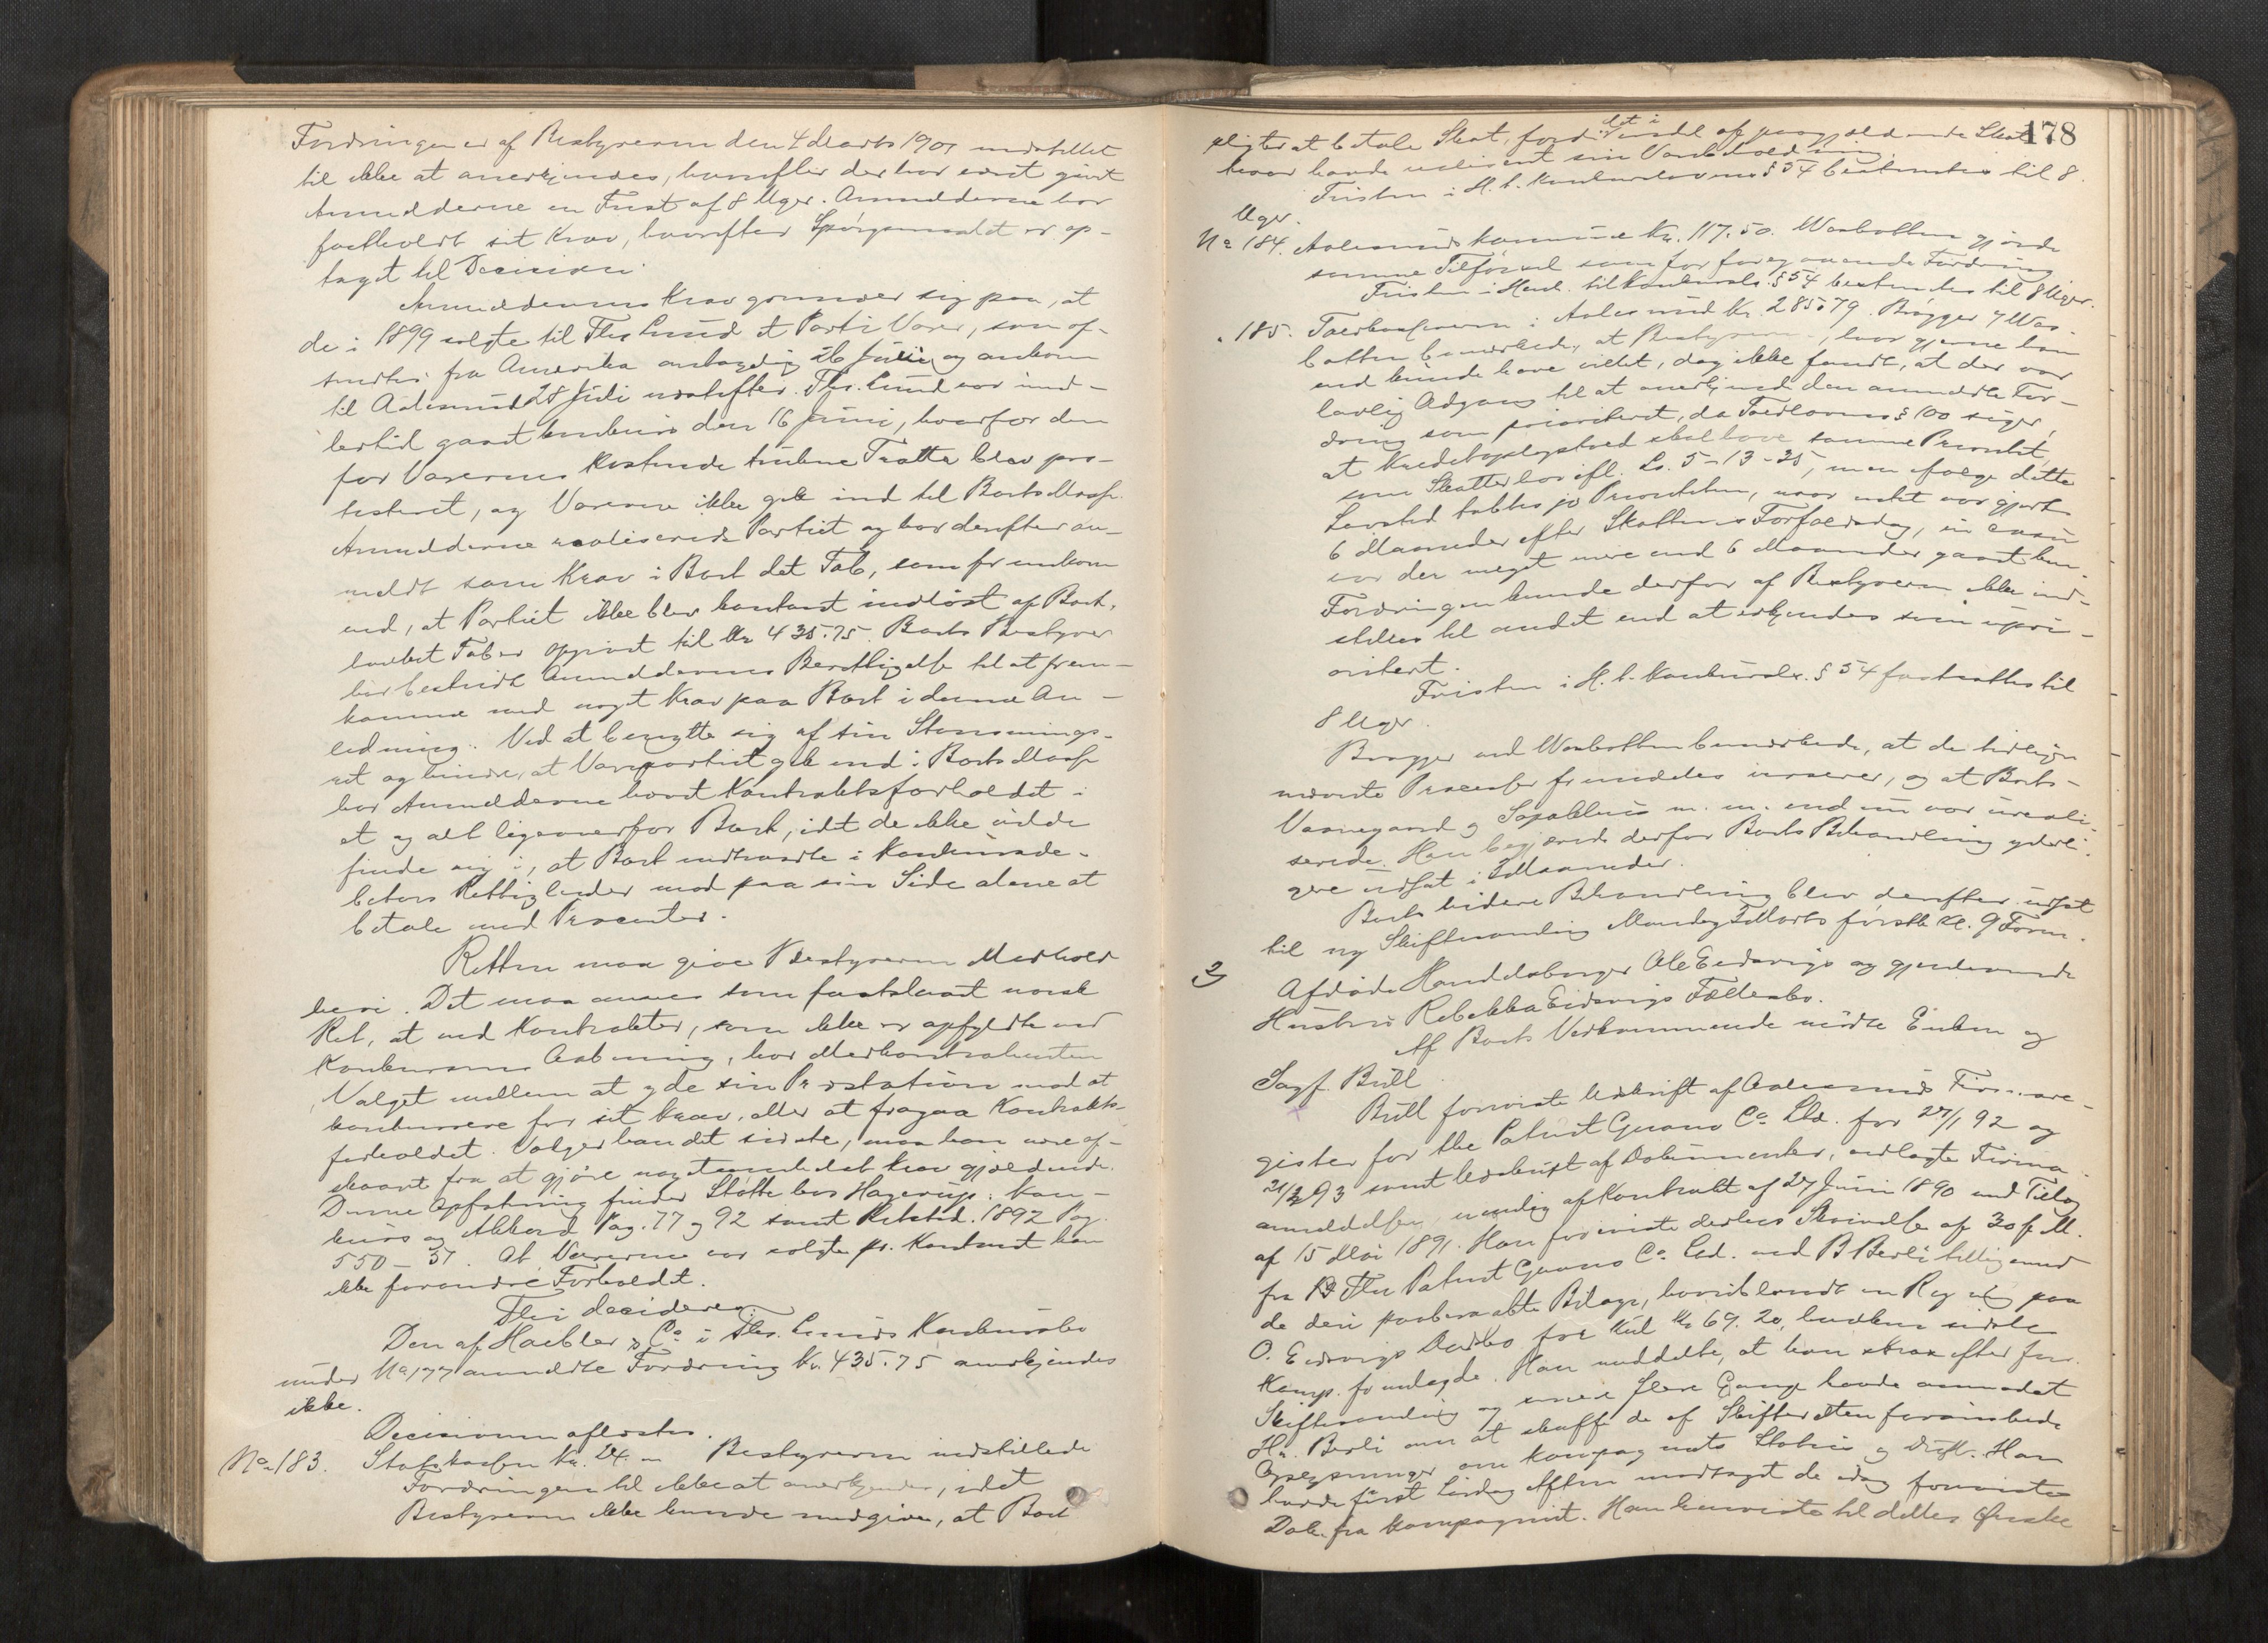 Fordringen er af Bestyreren den 4 Marts 1901 indstillet
til ikke at anerkjendes, hvorefter der har været givet
Anmelderne en Frist af 8 Uger. Anmelderne har
fastholdt sit Krav, hvorefter Spørgsmaalet er op-
taget til Decision.
Anmeldernes Krav grunder sig paa, at
de i 1899 solgte til Ths. Lund et Parti Varer, som af-
sendtes fra Amerika 26 Juni og ankom
til Aalesund 28 Juli næstefter. Ths. Lund var imid-
lertid gaaet konkurs den 16 Juni, hvorfor den
for Varernes Kostende trukne Tratte blev pro-
testeret, og Varerne ikke gik ind til Boets Masse.
Anmelderne realiserede Partiet og har derefter an-
meldt som Krav i Boet det Tab, som fremkom
ved, at Partiet ikke blev kontant indløst af Boet,
hvilket Tab er opgivet til Kr 435.75. Boets Bestyrer
har bestridt Anmeldernes Berettigelse til at frem-
komme med noget Krav paa Boet i denne An-
ledning. Ved at benytte sig af sin Stansnings-
ret og hindre, at Varepartiet gik ind i Boets Masse
har Anmelderne hævet Kontraktsforholdet i
et og alt ligeoverfor Boet, idet de ikke vilde
finde sig i, at Boet indtraadte i Konkursde-
bitors Rettigheder mod paa sin Side alene at
betale med Procenter.
Retten maa give Bestyreren Medhold
heri. Det maa ansees som fastslaaet norsk
Ret, at ved Kontrakter, som ikke er opfyldte ved
Konkursens Aabning, har Medkontrahenten
Valget mellem at yde sin Præstation mod at
konkurrere for sit Krav, eller at fragaa Kontrakts-
forholdet. Vælger han det sidste, maa han være af-
skaaret fra at gjøre noget Krav gjældende.
Denne Opfatning finder Støtte hos Hagerup: Kon-
kurs og Akkord Pag. 77 og 92 samt Retstid. 1892 Pag.
550 – 51. At Varerne var solgte pr. Kontant kan
ikke forandre Forholdet.
Thi decideres:
Den af Haebler & Co i Ths. Lunds Konkursbo
under No 177 anmeldte Fordring Kr. 435.75 anerkjendes
ikke.
Decisionen oplæstes.
No 183. Statskassen Kr. 24.– Bestyreren indstillede
Fordringen til ikke at anerkjendes, idet
Bestyreren ikke kunde medgive, at Boet
178
pligter at betale Skat, fordi det i af paagjældende Skat
havde reserveret sin
Fristen i H. t. Konkurslovens § 54 bestemtes til 8
Uger.
No 184. Aalesunds Kommune Kr. 117.50. Waxbotten gjorde
samme Tilførsel som for foregaaende Fordring
Fristen i Henh. til Konkursl. § 54 bestemtes til 8 Uger.
" 185. Toldkassereren i Aalesund Kr. 285.79. Brøgger & Wax-
botten bemærkede, at Bestyreren, hvor gjerne han
end kunde have villet, dog ikke fandt, at der var
lovlig Adgang til at anerkjende den anmeldte For-
dring som prioriteret, da Toldlovens § 100 siger,
at Kreditoplagstold skal have samme Prioritet
som Skatter har ifl. Lo. 5-13-35, men ifølge dette
Lovsted tabtes jo Prioriteten, naar intet var gjort
6 Maaneder efter Skattens Forfaldsdag, in casu
var der meget mere end 6 Maaneder gaaet hen.
Fordringen kunde derfor af Bestyreren ikke ind-
stilles til andet end at erkjendes som upri-
oriteret.
Fristen i H. t. Konkursl. § 54 fastsattes til
8 Uger.
Brøgger ved Waxbotten bemærkede, at de tidligere
nævnte Processer fremdeles verserer, og at Boets
Vaanegaard og m. m. endnu var ureali-
serede. Han begjærede derfor Boets Behandling yderli-
gere udsat i Maaneder.
Boets videre Behandling blev derefter udsat
til ny Skiftesamling Mandag Marts første Kl. 9 Form.
2) Afdøde Handelsborger Ole Eidsvigs og gjenlevende
Hustru Rebekka Eidsvigs Fællesbo.
Af Boets Vedkommende mødte Enken og
Sagf. Bull.
Bull foreviste Udskrift af Aalesunds Firmare-
gister for the Patent Guano Co Ltd. for 27/1 92 og
21/2 93 samt Udskrift af Dokumenter, vedlagte Firma-
anmeldelsen, nemlig af Kontrakt af 27 Juni 1890 med Tillæg
af 15 Mai 1891. Han foreviste derhos Skrivelse af 30 f. M.
fra The Patent Guano Co. Ltd. ved B Berli tilligemed
de deri paaberaabte Bilage, hvoriblandt en Regning paa
O. Eidsvigs Dødsbo for Kul Kr 69.20, hvilken sidste
Komp. fremlagde. Han meddelte, at han strax efter forr.
Skiftesamling og senere flere Gange havde anmodet
Hr. Berli om at skaffe de af Skifteretten forønskede
Oplysninger om Kompagniets Status og Drift. Han
havde først Lørdag Aften modtaget de idag foreviste
Dok. fra Kompagniet. Han henviste til dettes Ønske